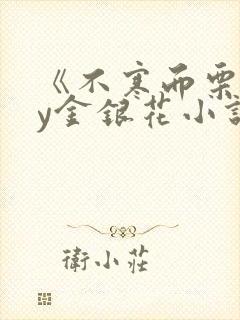 《不寒而栗
y金银花小
衛小莊